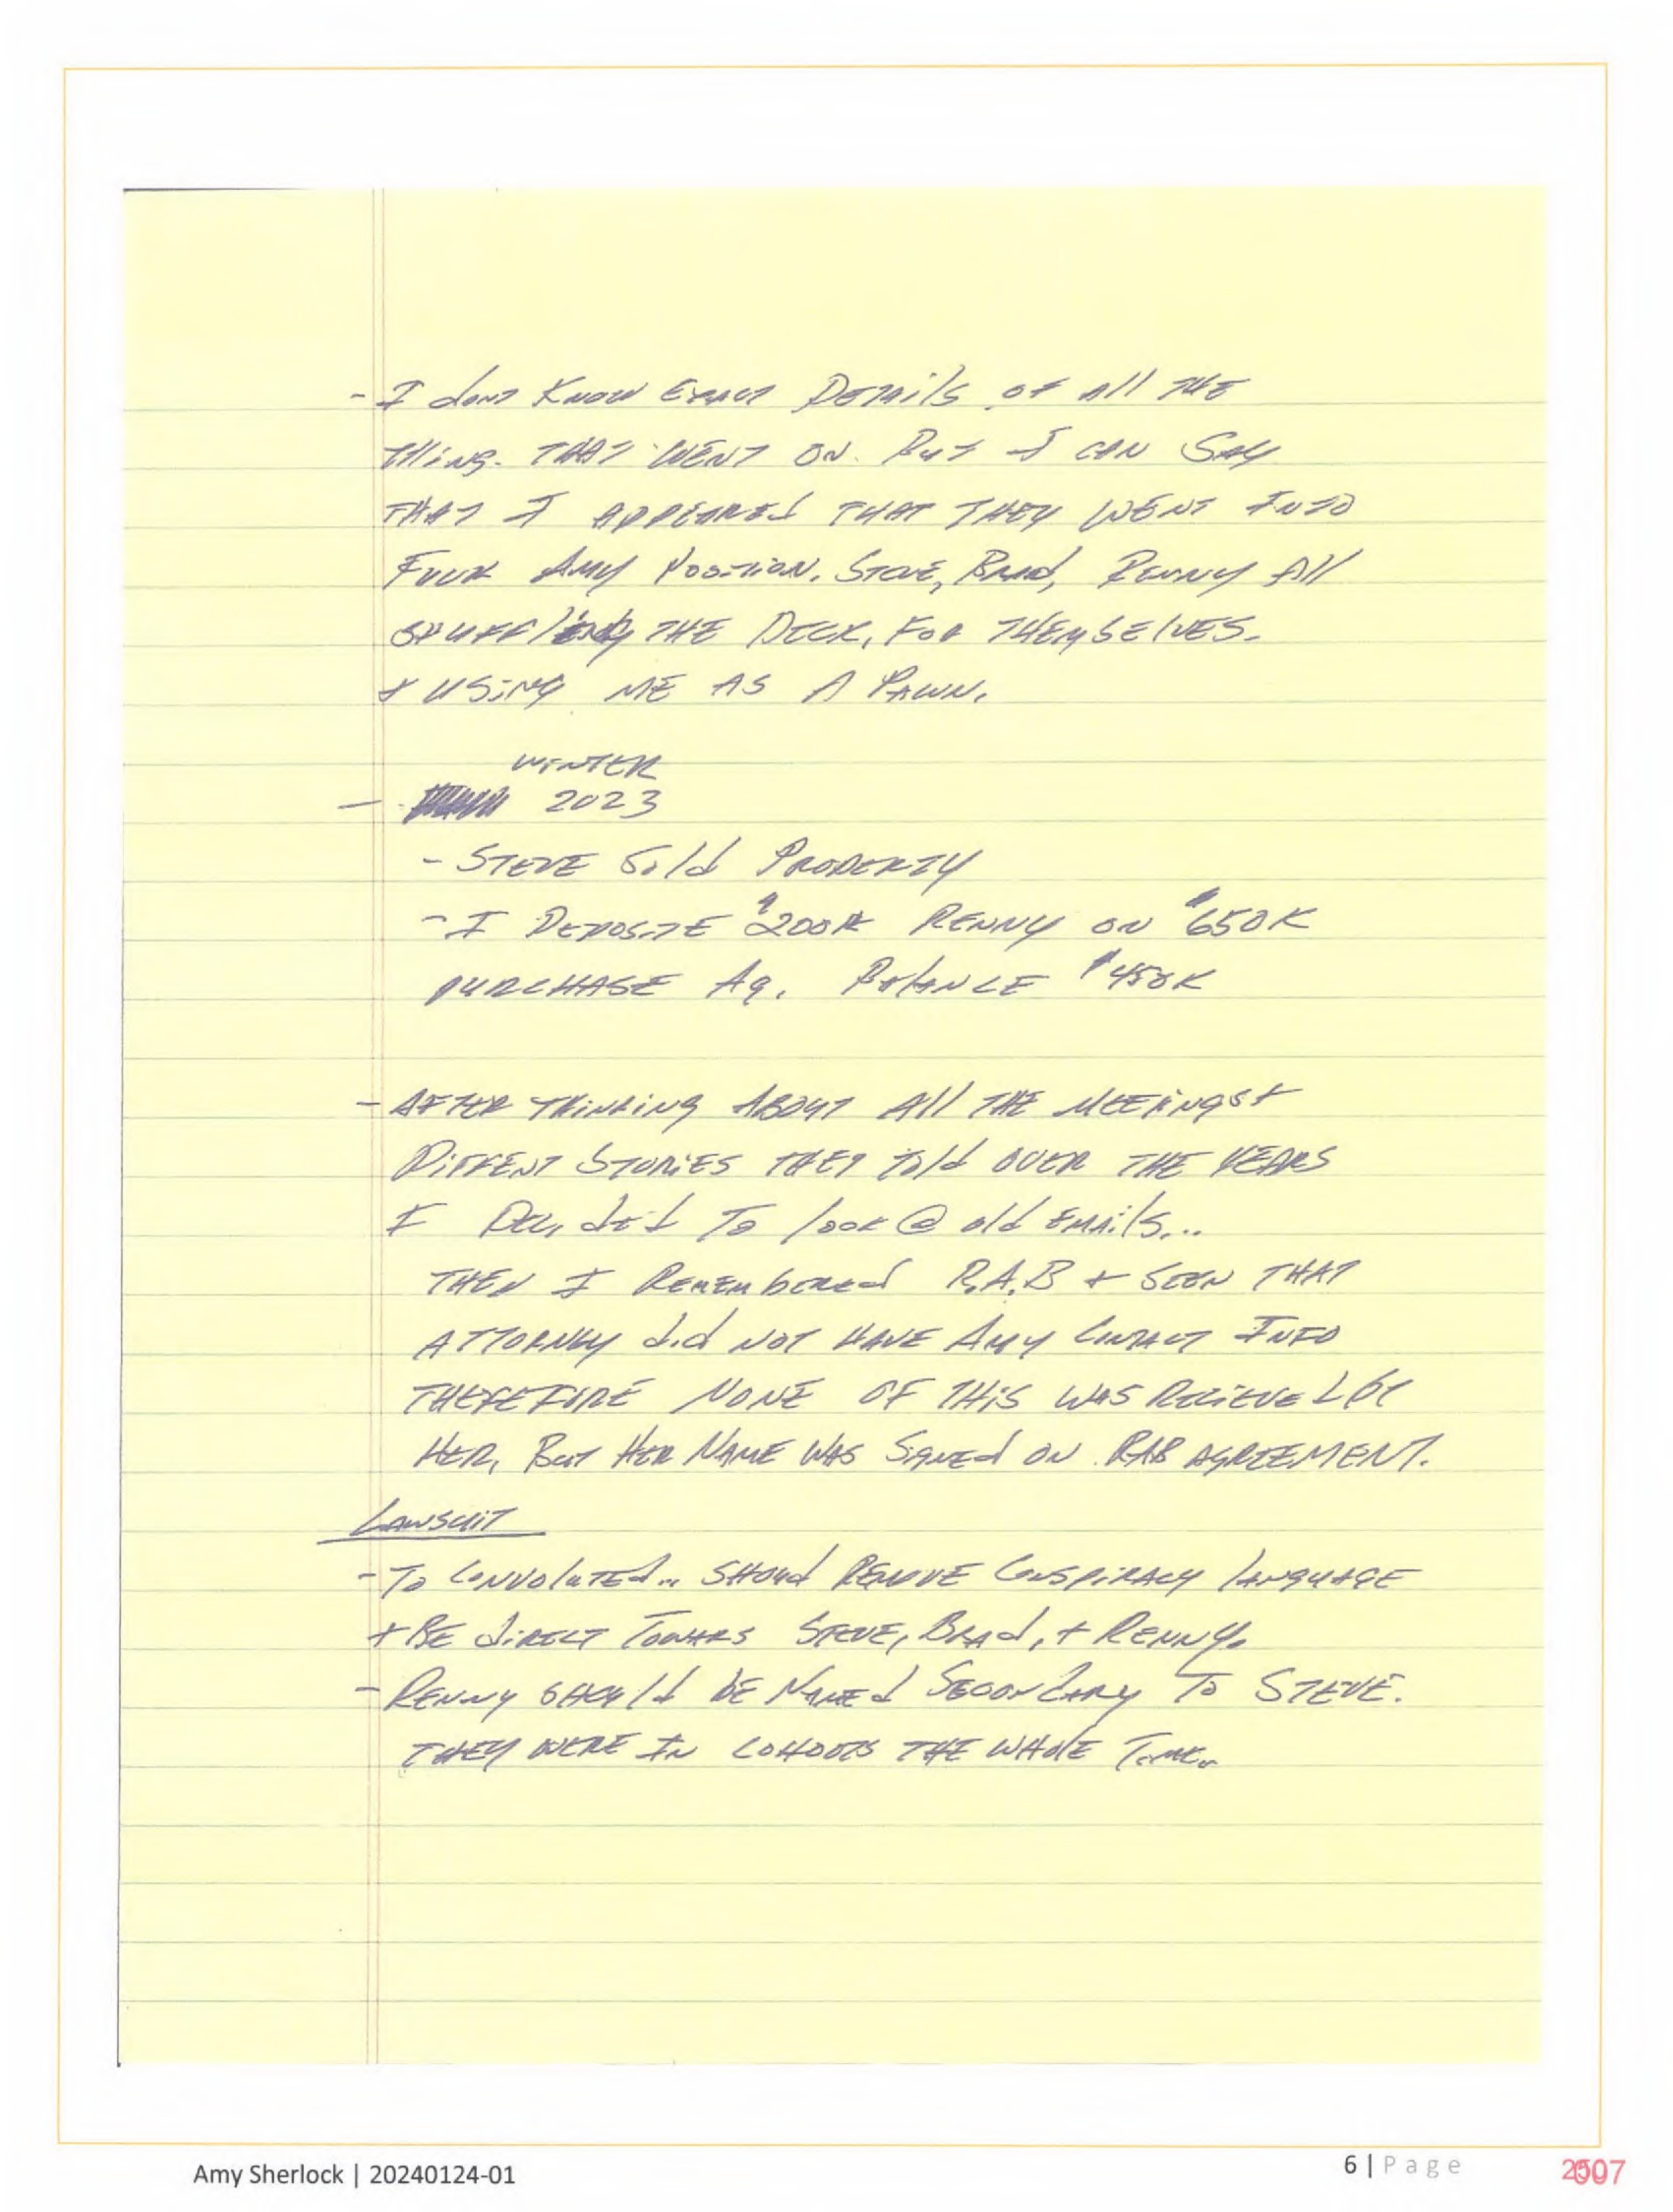 - I dont Know Exact Details of All THE
THing. THAT WENT ON. But I CAN SAY
THAT I APPEARED THAT THEY WENT INTO
Fuck Amy Position. Steve, Brad, Renny All
SHUFFlING THE DECK, FOR THEMSELVES.
+ USiNG ME AS A PAWN.
WINTER
- 2023
- STEVE Sold PROPERTY
- I DEPOSITE $200K RENNY ON $650K
PURCHASE Ag. BalANCE $450K
- AFTER THINKING ABOUT All THE MEETINGS +
DIFFENT STORIES THEY Told OVER THE YEARS
I DECided To look @ old EMAils...
THEN I REMEMbERED R.A.B + SEEN THAT
ATTORNEY did NOT HAVE AMY CONTACT INFO
THEREFORE NONE OF THIS WAS RECIEVEd BY
HER, BUT HER NAME WAS SIGNED ON RAB AGREEMENT.
LAWSUIT
- To CONVOlUTED... SHOUld REMOVE CONSPIRACY LANGUAGE
+ BE DIRECT TOWARS STEVE, BRAd, + RENNY.
- RENNY SHOUld bE NAMEd SECONDARY TO STEVE.
THEY WERE IN COHOOTS THE WHOlE TIME.
Amy Sherlock | 20240124-01
6 | Page